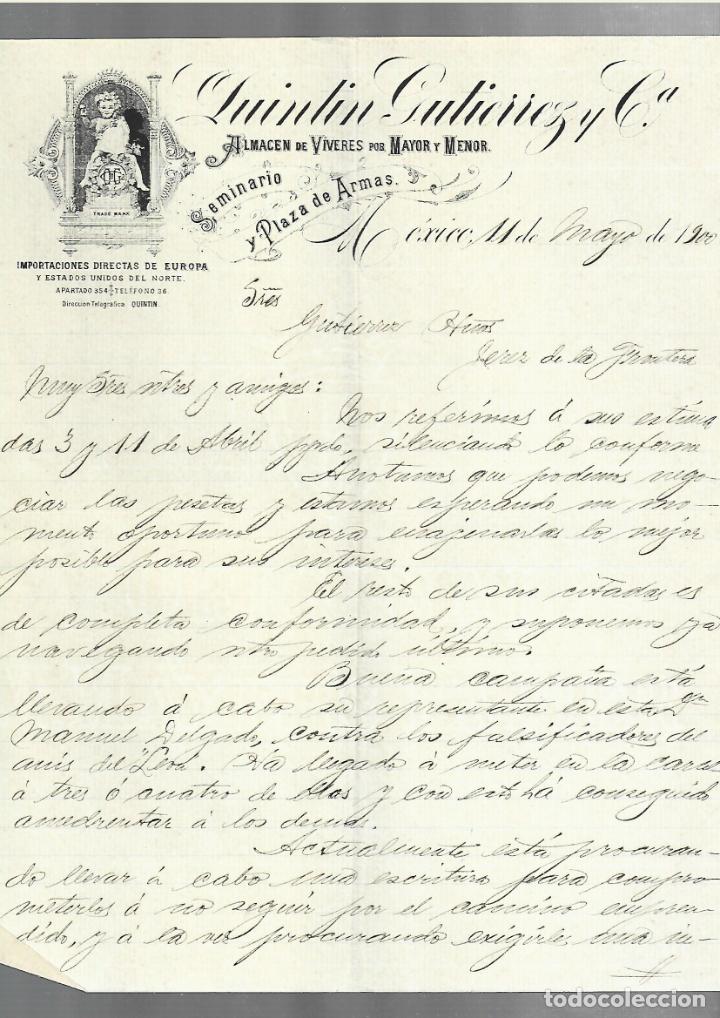 Quintin Gutierrez y Cª
ALMACEN DE VÍVERES POR MAYOR Y MENOR.
Seminario
y Plaza de Armas.
QG
TRADE MARK
IMPORTACIONES DIRECTAS DE EUROPA
Y ESTADOS UNIDOS DEL NORTE.
APARTADO 354 TELÉFONO 36.
Direccion Telegráfica QUINTIN.
México, 11 de Mayo de 1900
Sres
Gutierrez Hnos
Jerez de la Frontera
Muy Sres ntros y amigos:
Nos referimos á sus estima
das 3 y 11 de Abril ppdo, silenciando lo conforme
Anotamos que podemos nego-
ciar las pesetas y estamos esperando un mo-
mento oportuno para enajenarlas lo mejor
posible para sus intereses.
El resto de sus citadas es
de completa conformidad, y suponemos ya
navegando ntro pedido último.
Buena campaña está
llevando á cabo su representante en esta Dn
Manuel Delgado, contra los falsificadores del
anis del León. Ha llegado á meter en la carcel
á tres ó cuatro de ellos y con esto há conseguido
amedrentar á los demas.
Actualmente está procuran-
do llevar á cabo una escritura para compro
meterlos á no seguir por el camino empren-
dido, y á la vez procurando exigirles una in-
todocoleccion